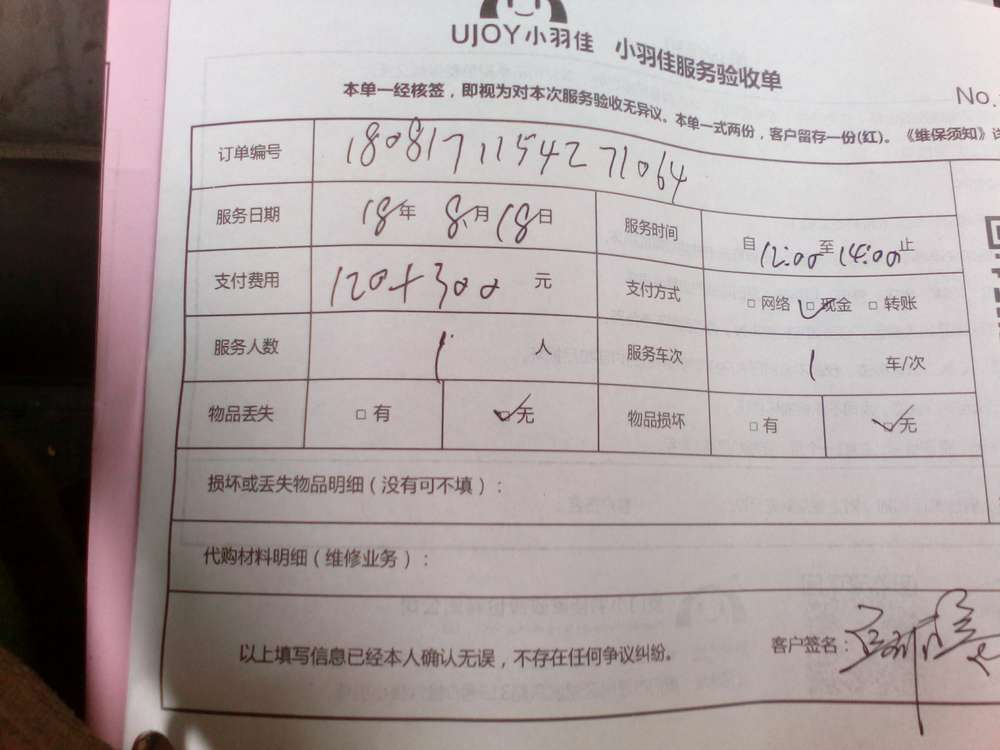 UJOY小羽佳 小羽佳服务验收单
No.
本单一经核签，即视为对本次服务验收无异议。本单一式两份，客户留存一份(红)。《维保须知》详
订单编号 180817115427 1064
服务日期 18年 8月 18日 服务时间 自12:00至14:00止
支付费用 120+300 元 支付方式 □网络 □现金 □转账
服务人数 1 人 服务车次 1 车/次
物品丢失 □有 □无 物品损坏 □有 □无
损坏或丢失物品明细（没有可不填）：
代购材料明细（维修业务）：
以上填写信息已经本人确认无误，不存在任何争议纠纷。 客户签名：